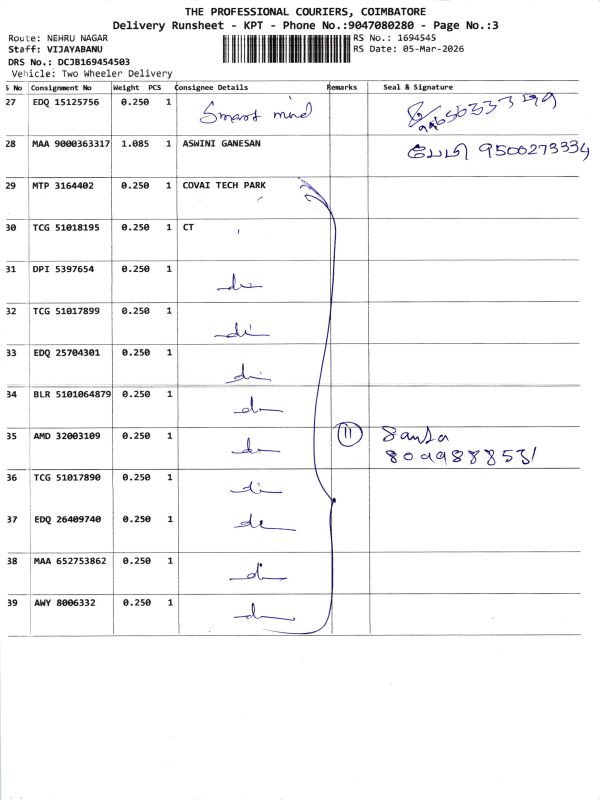 THE PROFESSIONAL COURIERS, COIMBATORE
Delivery Runsheet - KPT - Phone No.:9047080280 - Page No.:3
Route: NEHRU NAGAR
RS No.: 1694545
Staff: VIJAYABANU
RS Date: 05-Mar-2026
DRS No.: DCJB169454503
Vehicle: Two Wheeler Delivery
S No Consignment No Weight PCS Consignee Details Remarks Seal & Signature
27 EDQ 15125756 0.250 1 Smart mind
28 MAA 9000363317 1.085 1 ASWINI GANESAN 9500273334
29 MTP 3164402 0.250 1 COVAI TECH PARK
30 TCG 51018195 0.250 1 CT
31 DPI 5397654 0.250 1
32 TCG 51017899 0.250 1
33 EDQ 25704301 0.250 1
34 BLR 5101064879 0.250 1
35 AMD 32003109 0.250 1 11
8099888531
36 TCG 51017890 0.250 1
37 EDQ 26409740 0.250 1
38 MAA 652753862 0.250 1
39 AWY 8006332 0.250 1